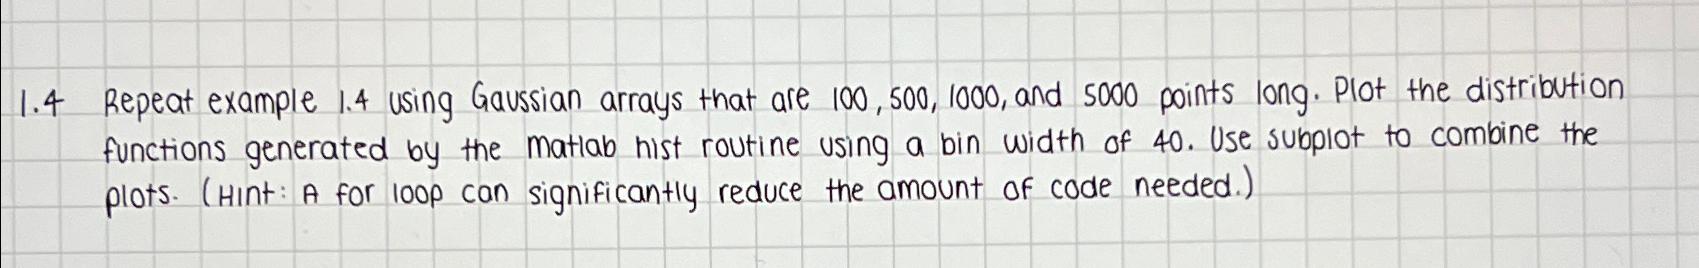 1.4 Repeat example 1.4 using Gaussian arrays that are 100, 500, 1000, and 5000 points long. Plot the distribution
functions generated by the matlab hist routine using a bin width of 40. Use subplot to combine the
plots. (Hint: A for loop can significantly reduce the amount of code needed.)